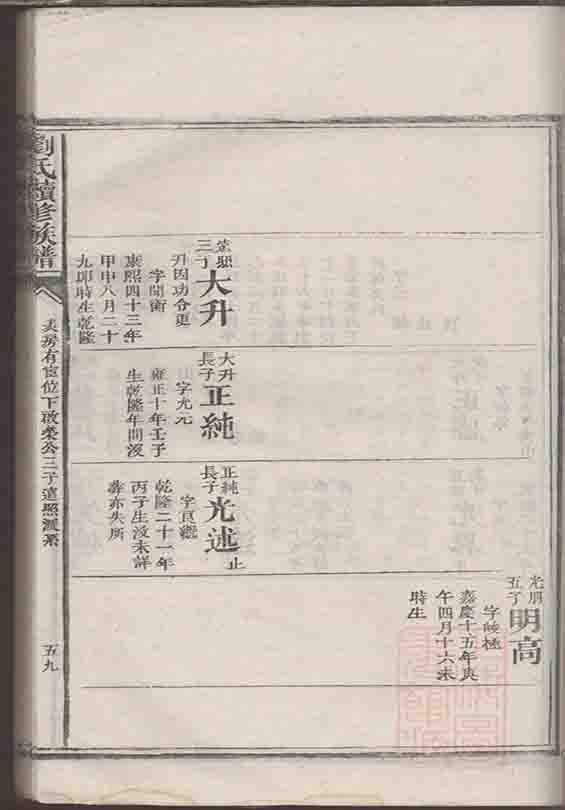 光朋
五子
明高
字峻極
嘉慶十五年庚
午四月十六未
時生
三子
大升
升因功令更
字開衡
康熙四十三年
甲申八月二十
九卯時生乾隆
大升
長子
正純
字允元
雍正十年壬子
生乾隆年間沒
正純
長子
光述
止
字良觀
乾隆二十一年
丙子生沒未詳
葬亦失所
劉氏續修族譜
房有宦位下啟榮公三子達照派系
五九